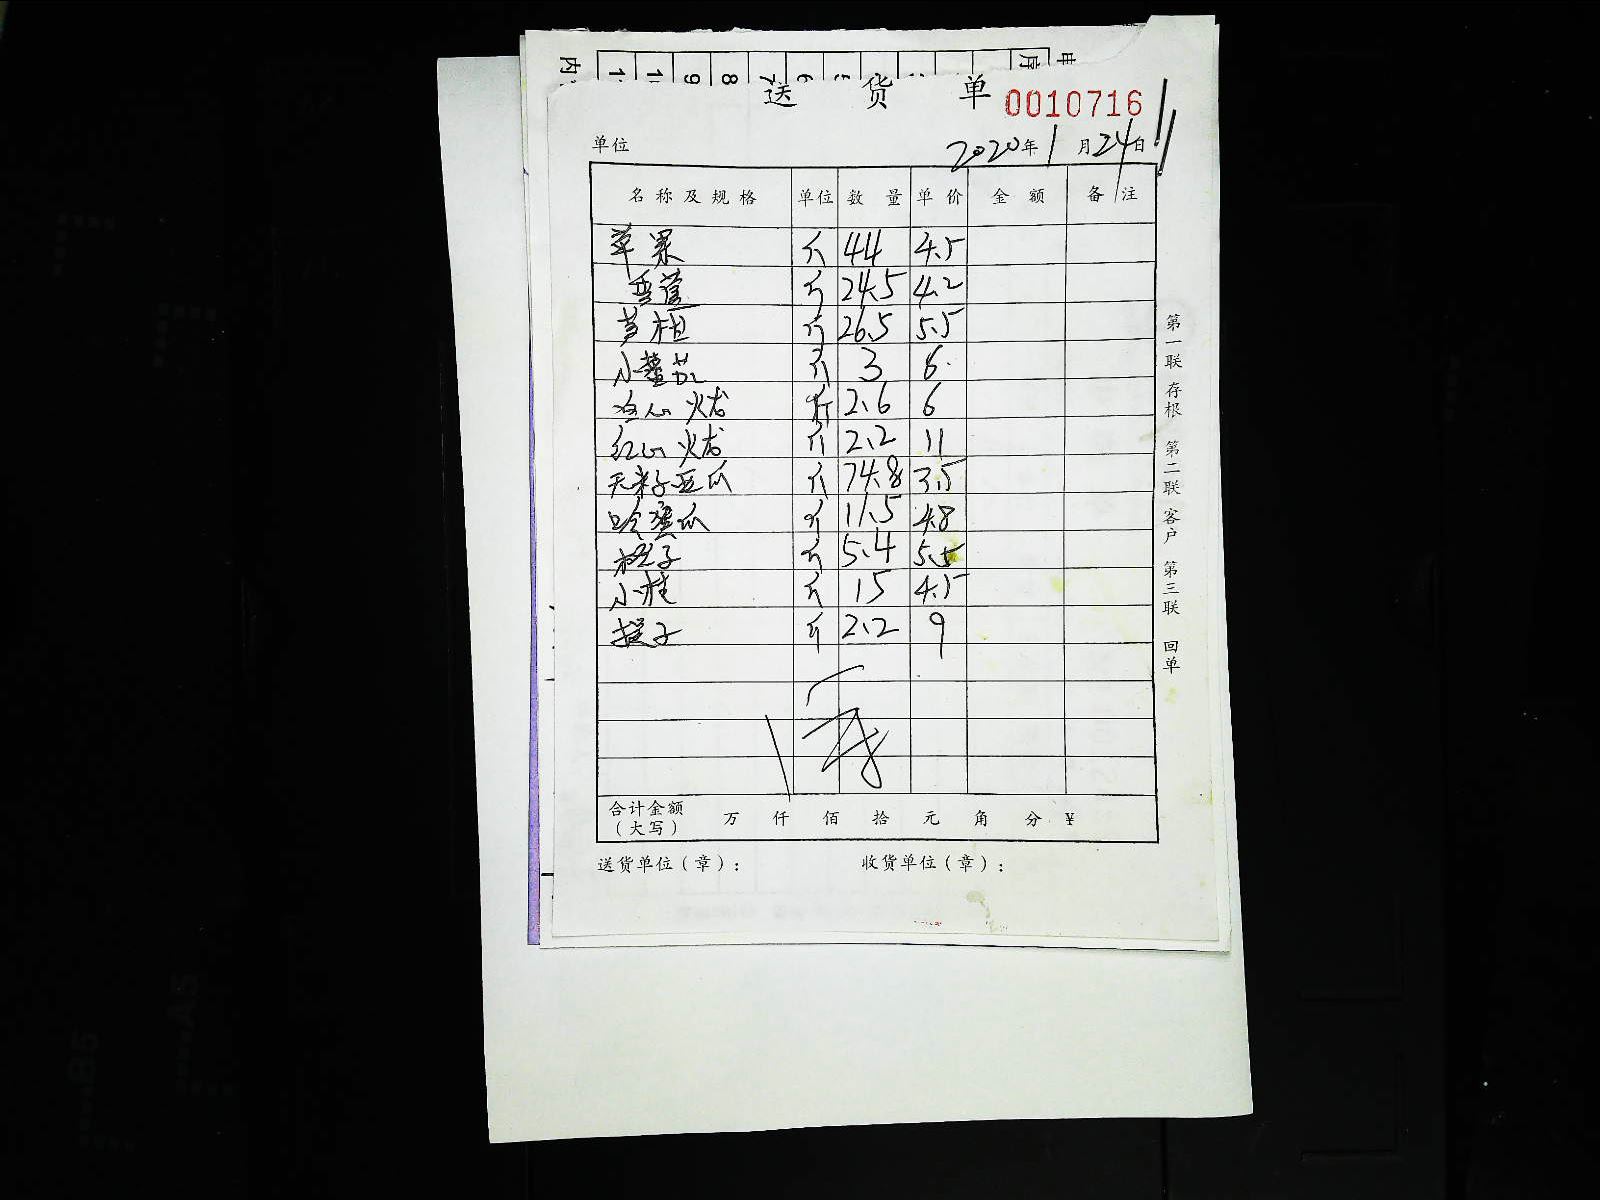 送货单 0010716
单位 2020年1月24日
名称及规格 单位 数量 单价 金额 备注
苹果 斤 44 4.5
香蕉 斤 24.5 4.2
芦柑 斤 26.5 5.5
小蕃茄 斤 3 6
白心火龙 斤 2.6 6
红心火龙 斤 2.2 11
无籽西瓜 斤 74.8 3.5
哈蜜瓜 斤 11.5 4.8
橙子 斤 5.4 5.5
小桔 斤 15 4.5
提子 斤 2.2 9
合计金额(大写) 万 仟 佰 拾 元 角 分 ¥
送货单位(章): 收货单位(章):
第一联 存根 第二联 客户 第三联 回单